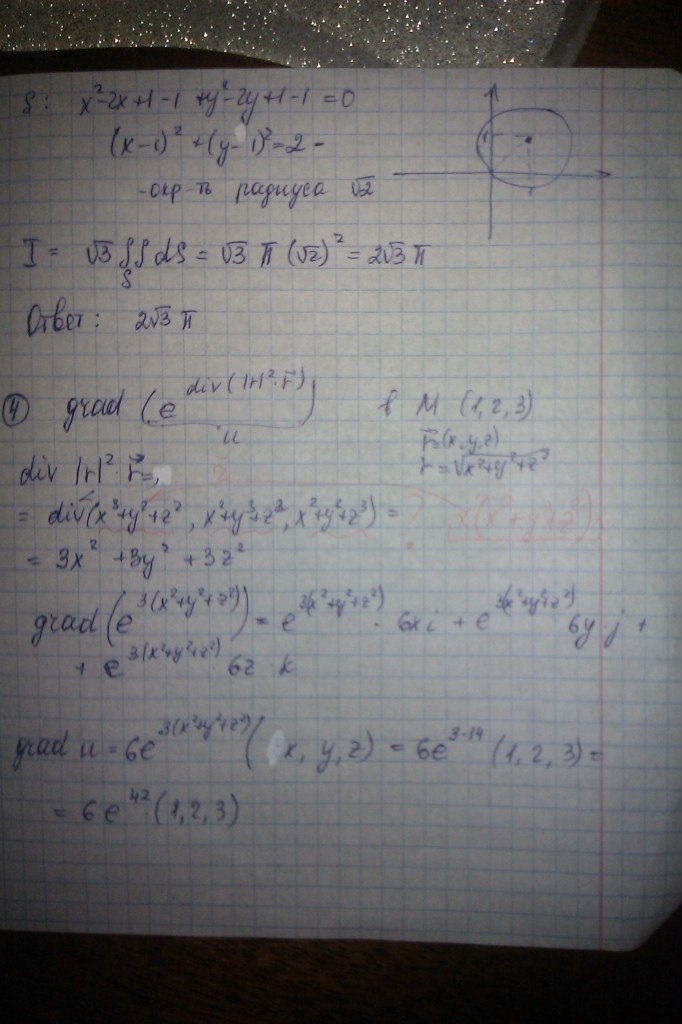 S: x²-2x+1-1 +y²-2y+1-1 =0
(x-1)² +(y-1)²=2 -
-окр-ть радиуса √2
1
1
I = √3 ∬ dS = √3 π (√2)² = 2√3 π
S
Ответ: 2√3 π
④ grad (e^{div(|r|²·r⃗)}) в M (1,2,3)
u
r⃗=(x,y,z)
r=√x²+y²+z²
div |r|²·r⃗=
= div(x³+y²+z², x²+y³+z², x²+y²+z³) =
= 3x² +3y² +3z²
grad(e^{3(x²+y²+z²)}) = e^{3(x²+y²+z²)} · 6x i + e^{3(x²+y²+z²)} 6y j +
+ e^{3(x²+y²+z²)} 6z k
grad u = 6e^{3(x²+y²+z²)} (x, y, z) = 6e^{3·14} (1, 2, 3) =
= 6 e^{42} (1,2,3)